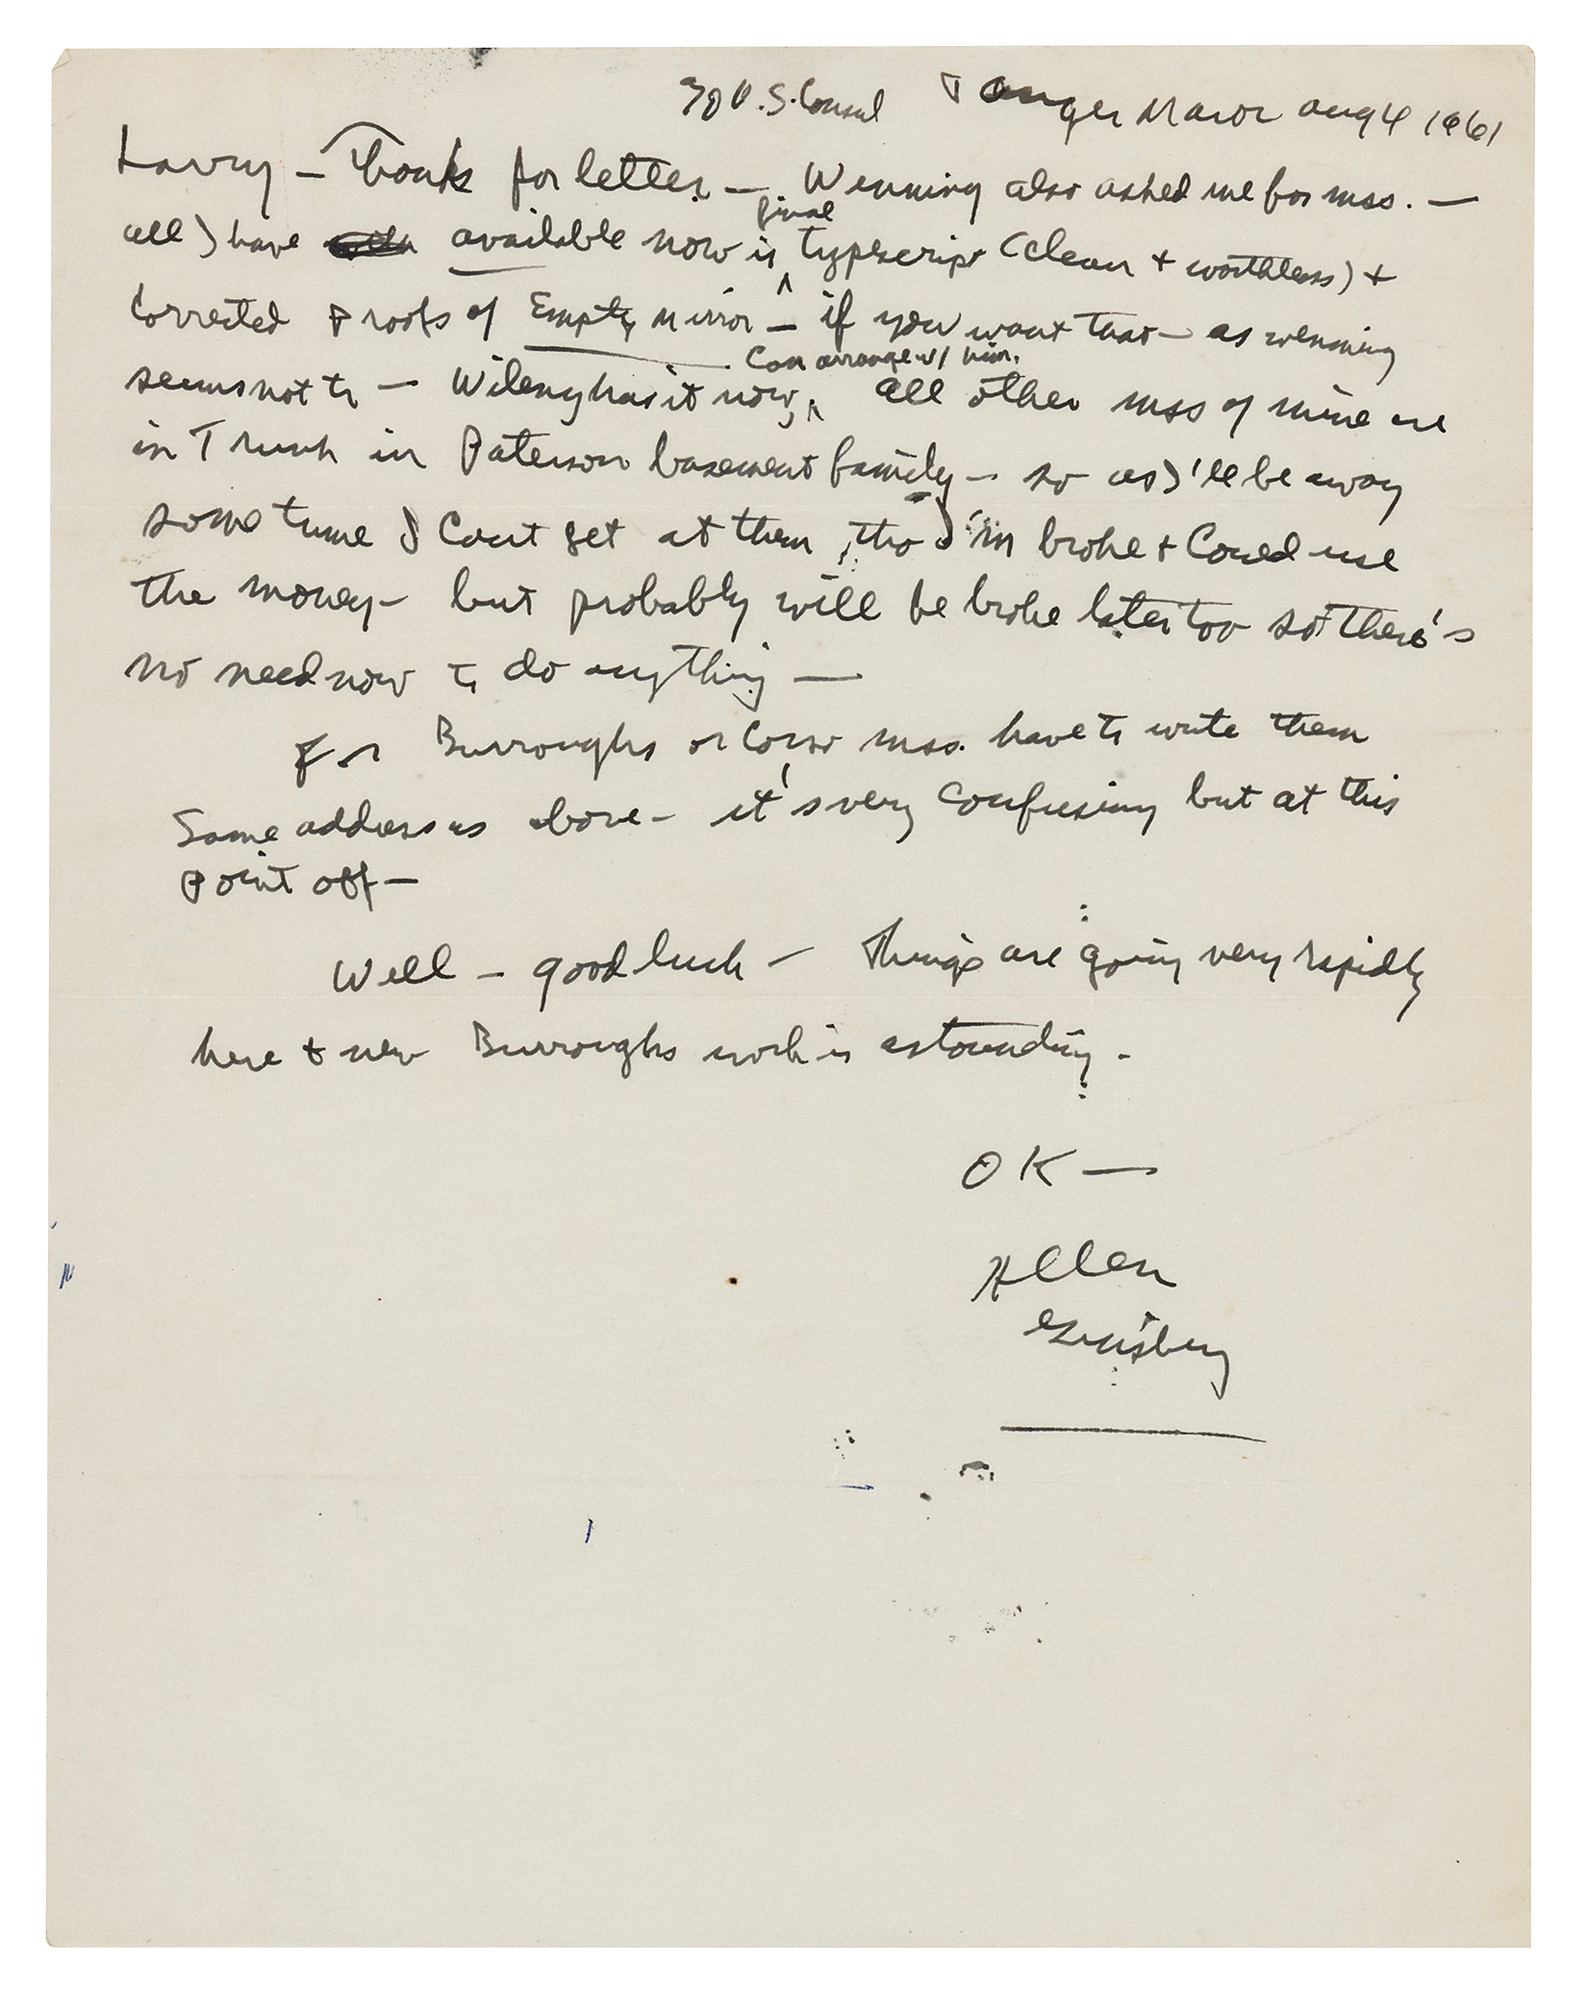 c/o U.S. Consul Tanger Maroc Aug 4 1961
Larry – Thanks for letter – Wenning also asked me for mss. –
all I have available now is final typescript (clean + worthless) +
corrected proofs of Empty Mirror – if you want that – as Wenning
seems not to – Wilentz has it now, can arrange w/ him. All other mss of mine are
in Trunk in Paterson basement family – so as I'll be away
some time I can't get at them, tho I'm broke + could use
the money – but probably will be broke later too so there's
no need now to do anything –
For Burroughs or Corso mss. have to write them
Same address as above – it's very confusing but at this
point off –
Well – good luck – Things are going very rapidly
here & new Burroughs work is astounding.
OK –
Allen
Ginsberg